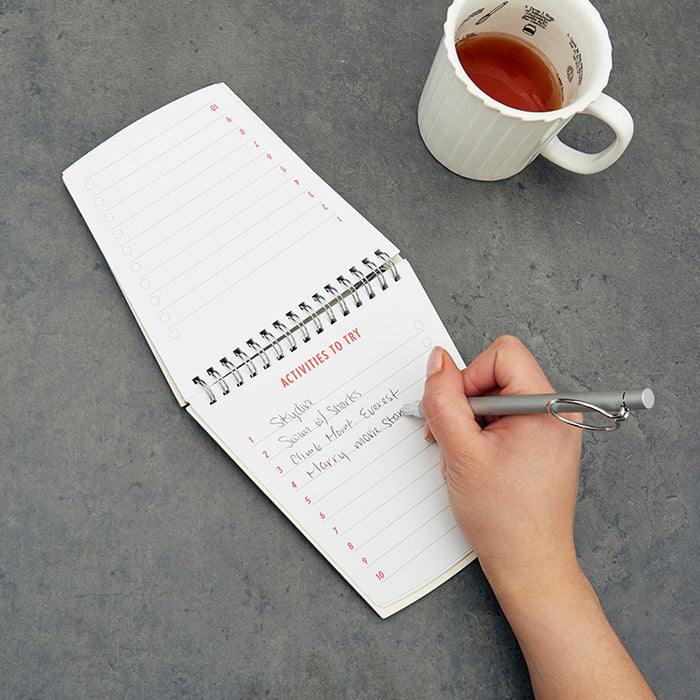 10
9
8
7
6
5
4
3
2
1
ACTIVITIES TO TRY
1 Skydive
2 Swim w/ Sharks
3 Climb Mount Everest
4 Marry movie star
5
6
7
8
9
10